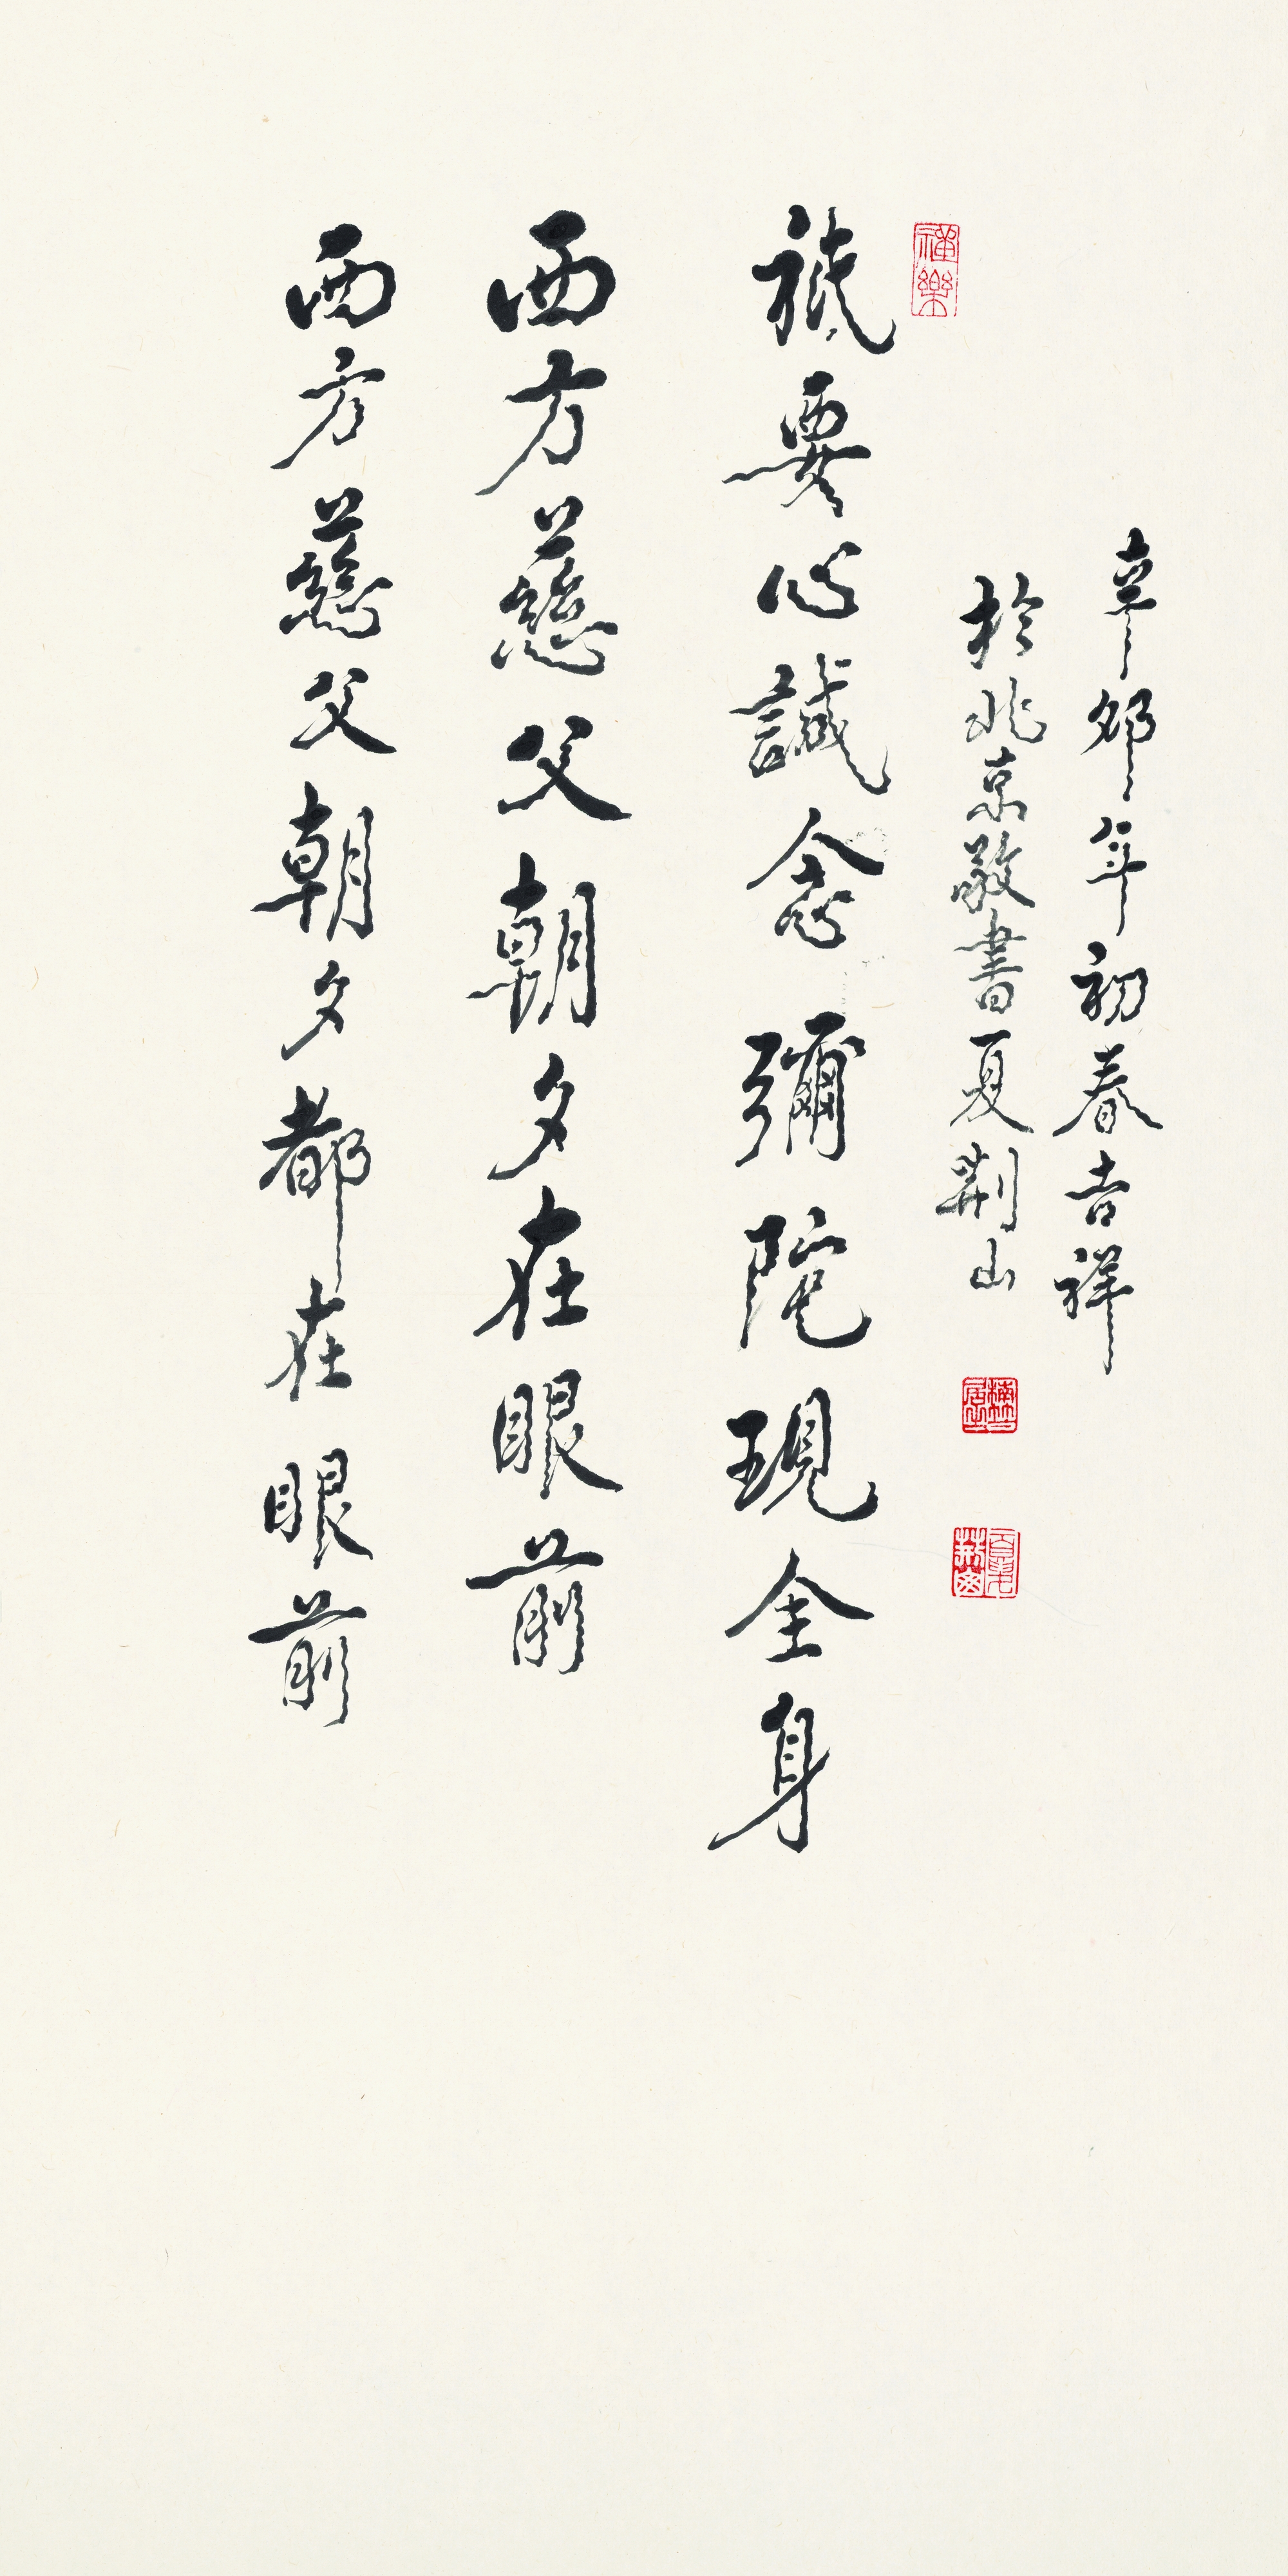 辛卯年初春吉祥
於北京敬書夏荊山
祇要心誠念彌陀現全身
西方慈父朝夕在眼前
西方慈父朝夕都在眼前